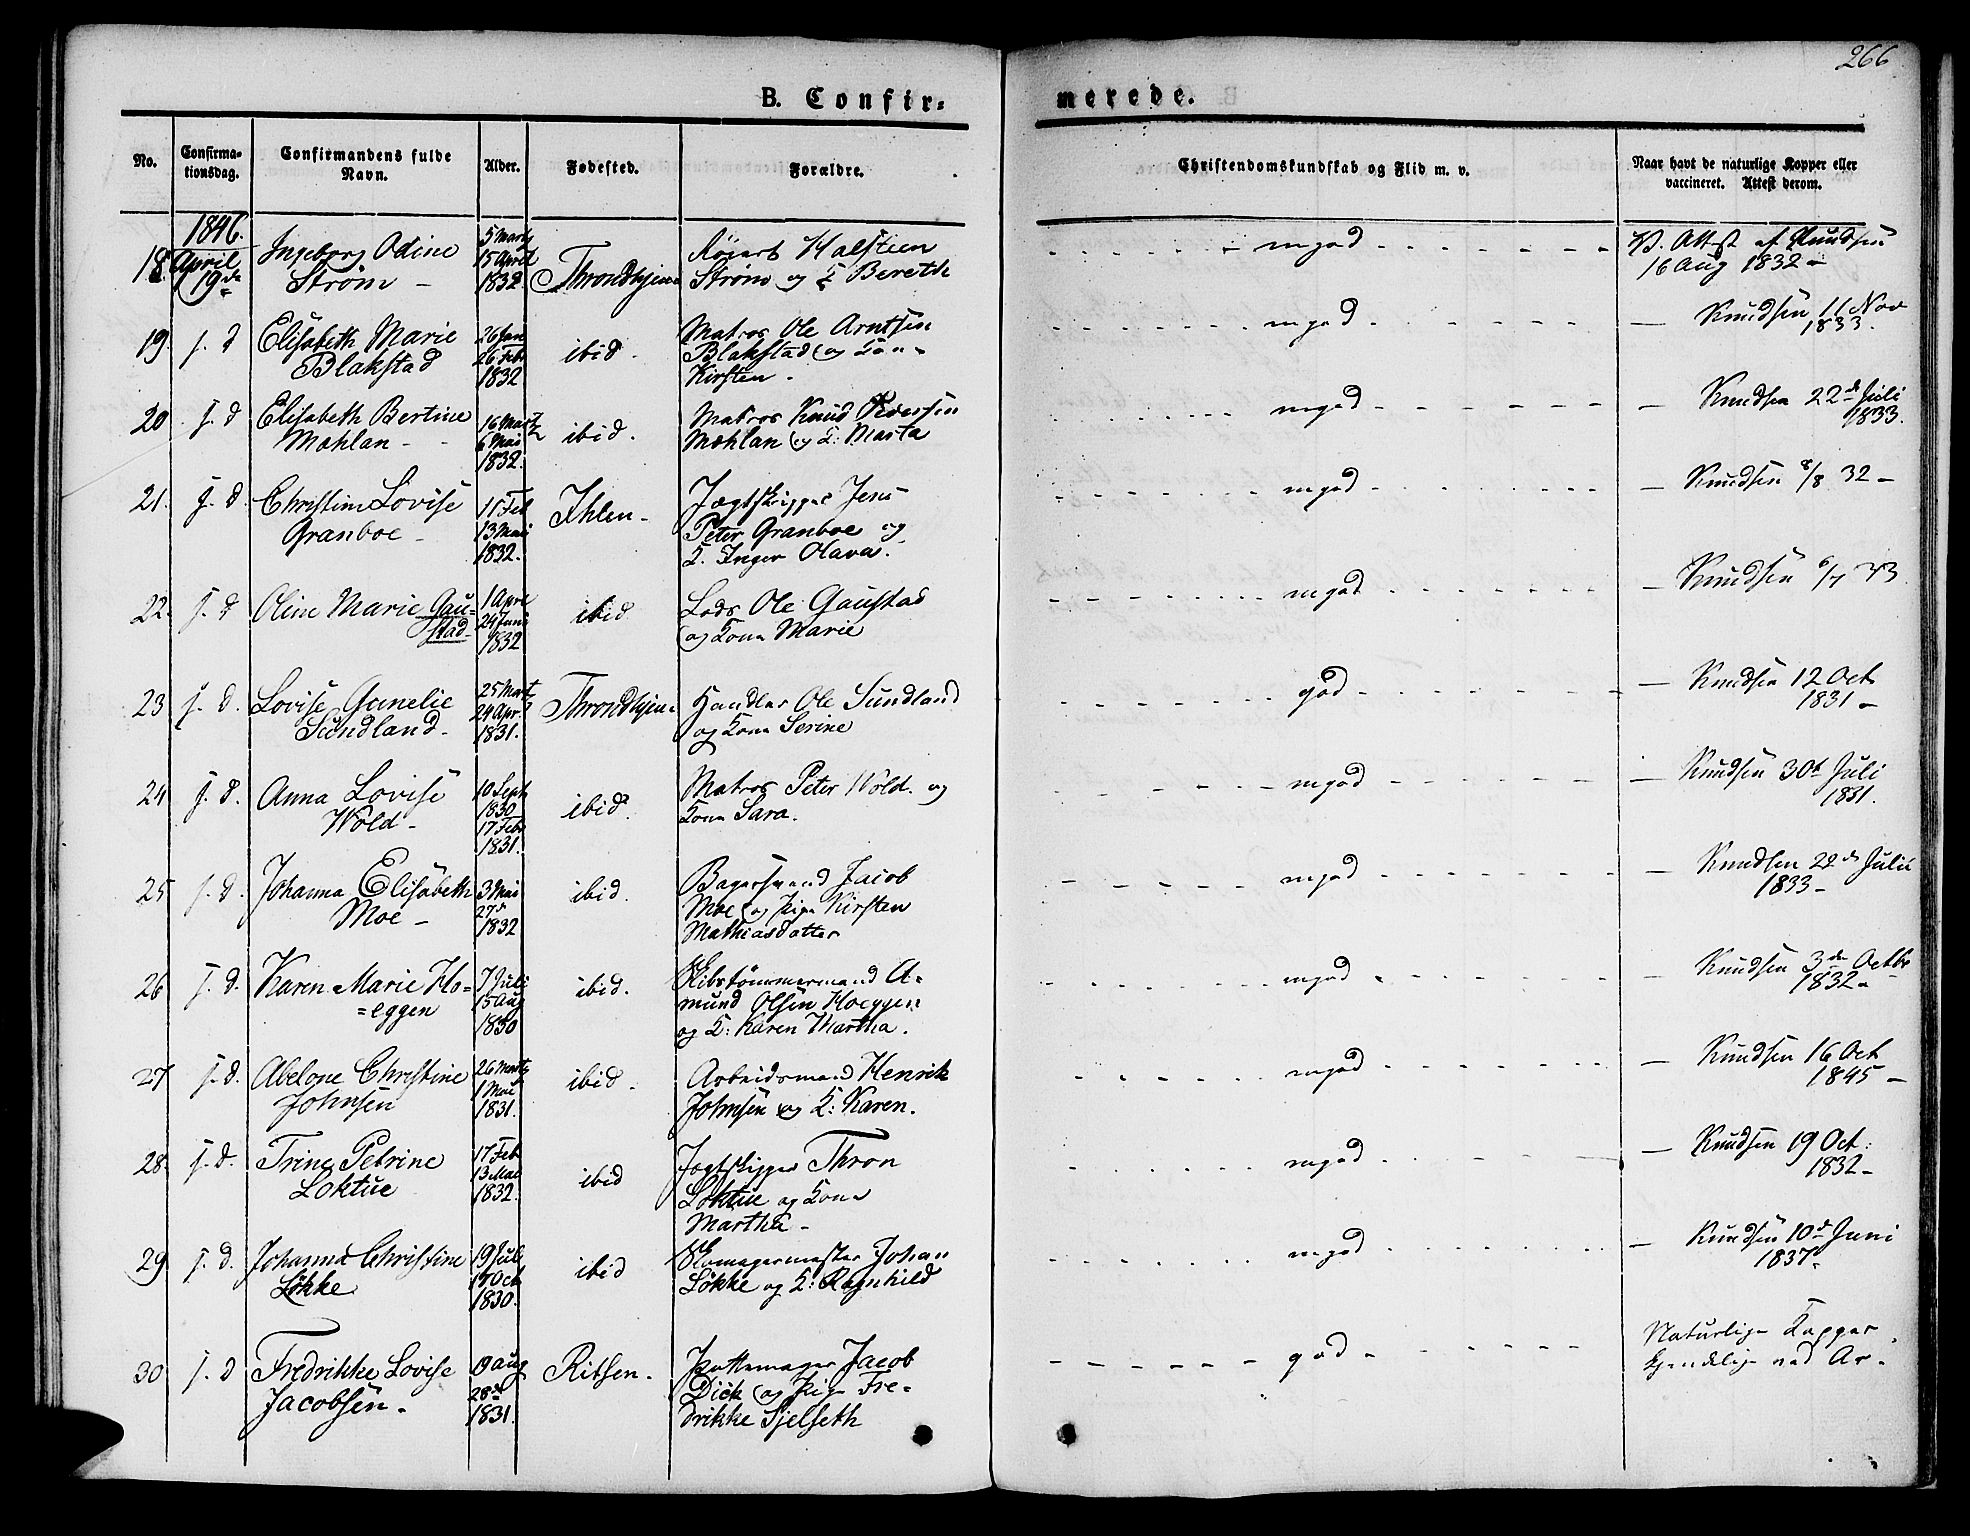 266
B. Confir-
merede.
No.
Confirma-
tionsdag.
Confirmandens fulde
Navn.
Alder.
Fødested.
Forældre.
Christendomskundskab og Flid m. v.
Naar havt de naturlige Kopper eller
vaccineret. Attest derom.
1846.
18 April
19de
Ingeborg Odine
Strøm -
5 Marts
15 April
1832.
Throndhjem
Halstein
Strøm og K Bereth
mgod
V. Attst af Knudsen
16 Aug 1832 -
19. s. d
Elisabeth Marie
Blakstad
26 Jan
26 Febr
1832
ibid.
Matros Ole Arntsen
Blakstad og Kon-
Kirsten -
mgod
- Knudsen 11 Nov
1833.
20 s. d
Elisabeth Bertine
Mæhlan -
16 Martz
6 Mai
1832.
ibid.
Matros Knud Iversen
Mæhlan og K: Marta
mgod
- Knudsen 22d Juli
1833.
21. s. d.
Christine Lovise
Granboe -
11 Feb
13 Mai
1832.
Ihlen -
Jægtskipper Jens
Peter Granboe og
K. Inger Olava.
mgod
- Knudsen 8/8 32 -
22. s. d
Oline Marie Gau-
stad -
1 Apr
24 Juni
1832
ibid
Lods Ole Gaustad
og Kone Marie
mgod
- Knudsen 6/7 33
23 s. d.
Lovise Amelie
Sundland -
25 Mart
24 Apr
1831.
Throndhjem
Handler Ole Sundland
og Kone Serine
god
- Knudsen 12 Oct
1831 -
24 s. d.
Anna Lovise
Wold -
10 Sept
1830
17 Febr
1831.
ibid.
Matros Peter Wold. og
Kone Sara.
mgod
- Knudsen 30t Juli
1831.
25 s. d.
Johanna Elisabeth
Moe -
3 Mai
27d
1832
ibid.
Bagersvend Jacob
Moe og Pige Kirsten
Mathiasdatter
mgod
- Knudsen 22d Julii
1833 -
26 s. d.
Karen Marie Ho-
=eggen
7 Juli
15 Aug
1830
ibid.
Skibstømmermand A-
mund Olsen Hoeggen
og K: Karen Martha.
mgod
- Knudsen 3de Octbr
1832 -
27 s. d.
Abelone Christine
Johnsen
26 Marts
1 Mai
1831.
ibid.
Arbeidsmand Henrik
Johnsen og K: Karen.
mgod
- Knudsen 16 Oct
1845 -
28 s. d.
Trine Petrine
Loktue
17 Feb
13 Mai
1832.
ibid
Jægtskipper Thron
Loktue og Kone
Martha -
mgod
- Knudsen 19 Oct:
1832 -
29 s. d.
Johanna Christine
Løkke
19 Juli
17 Oct
1830.
ibid
Skomagermester Johan
Løkke og K: Ragnhild
mgod
- Knudsen 10d Juni
1837
30 s. d
Fredrikke Lovise
Jacobsen -
19 Aug
28d
1831.
Ritsen -
Pottemager Jacob
Dick og Pige Fre-
drikke Sjelseth
god
Naturlige Kopper,
kjendelig ved Ar-